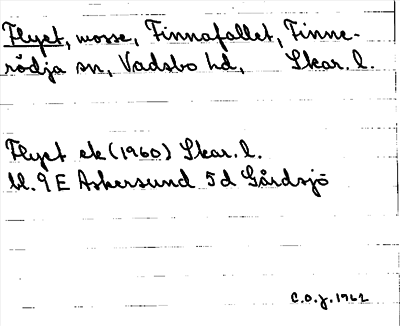 Flyet, mosse, Finnafallet, Finne-
rödja sn, Vadsbo hd, Skar. l.
Flyet ek (1960) Skar. l.
bl. 9 E Askersund 5d Gårdsjö
C.O.J. 1962